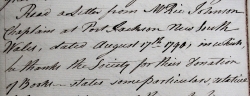 Read a Letter from Mr Ric Johnson
Chaplain at Port Jackson New South
Wales, dated August 17th 1794, in which
he thanks the Society for this Donation
of Books – states some particulars, relative